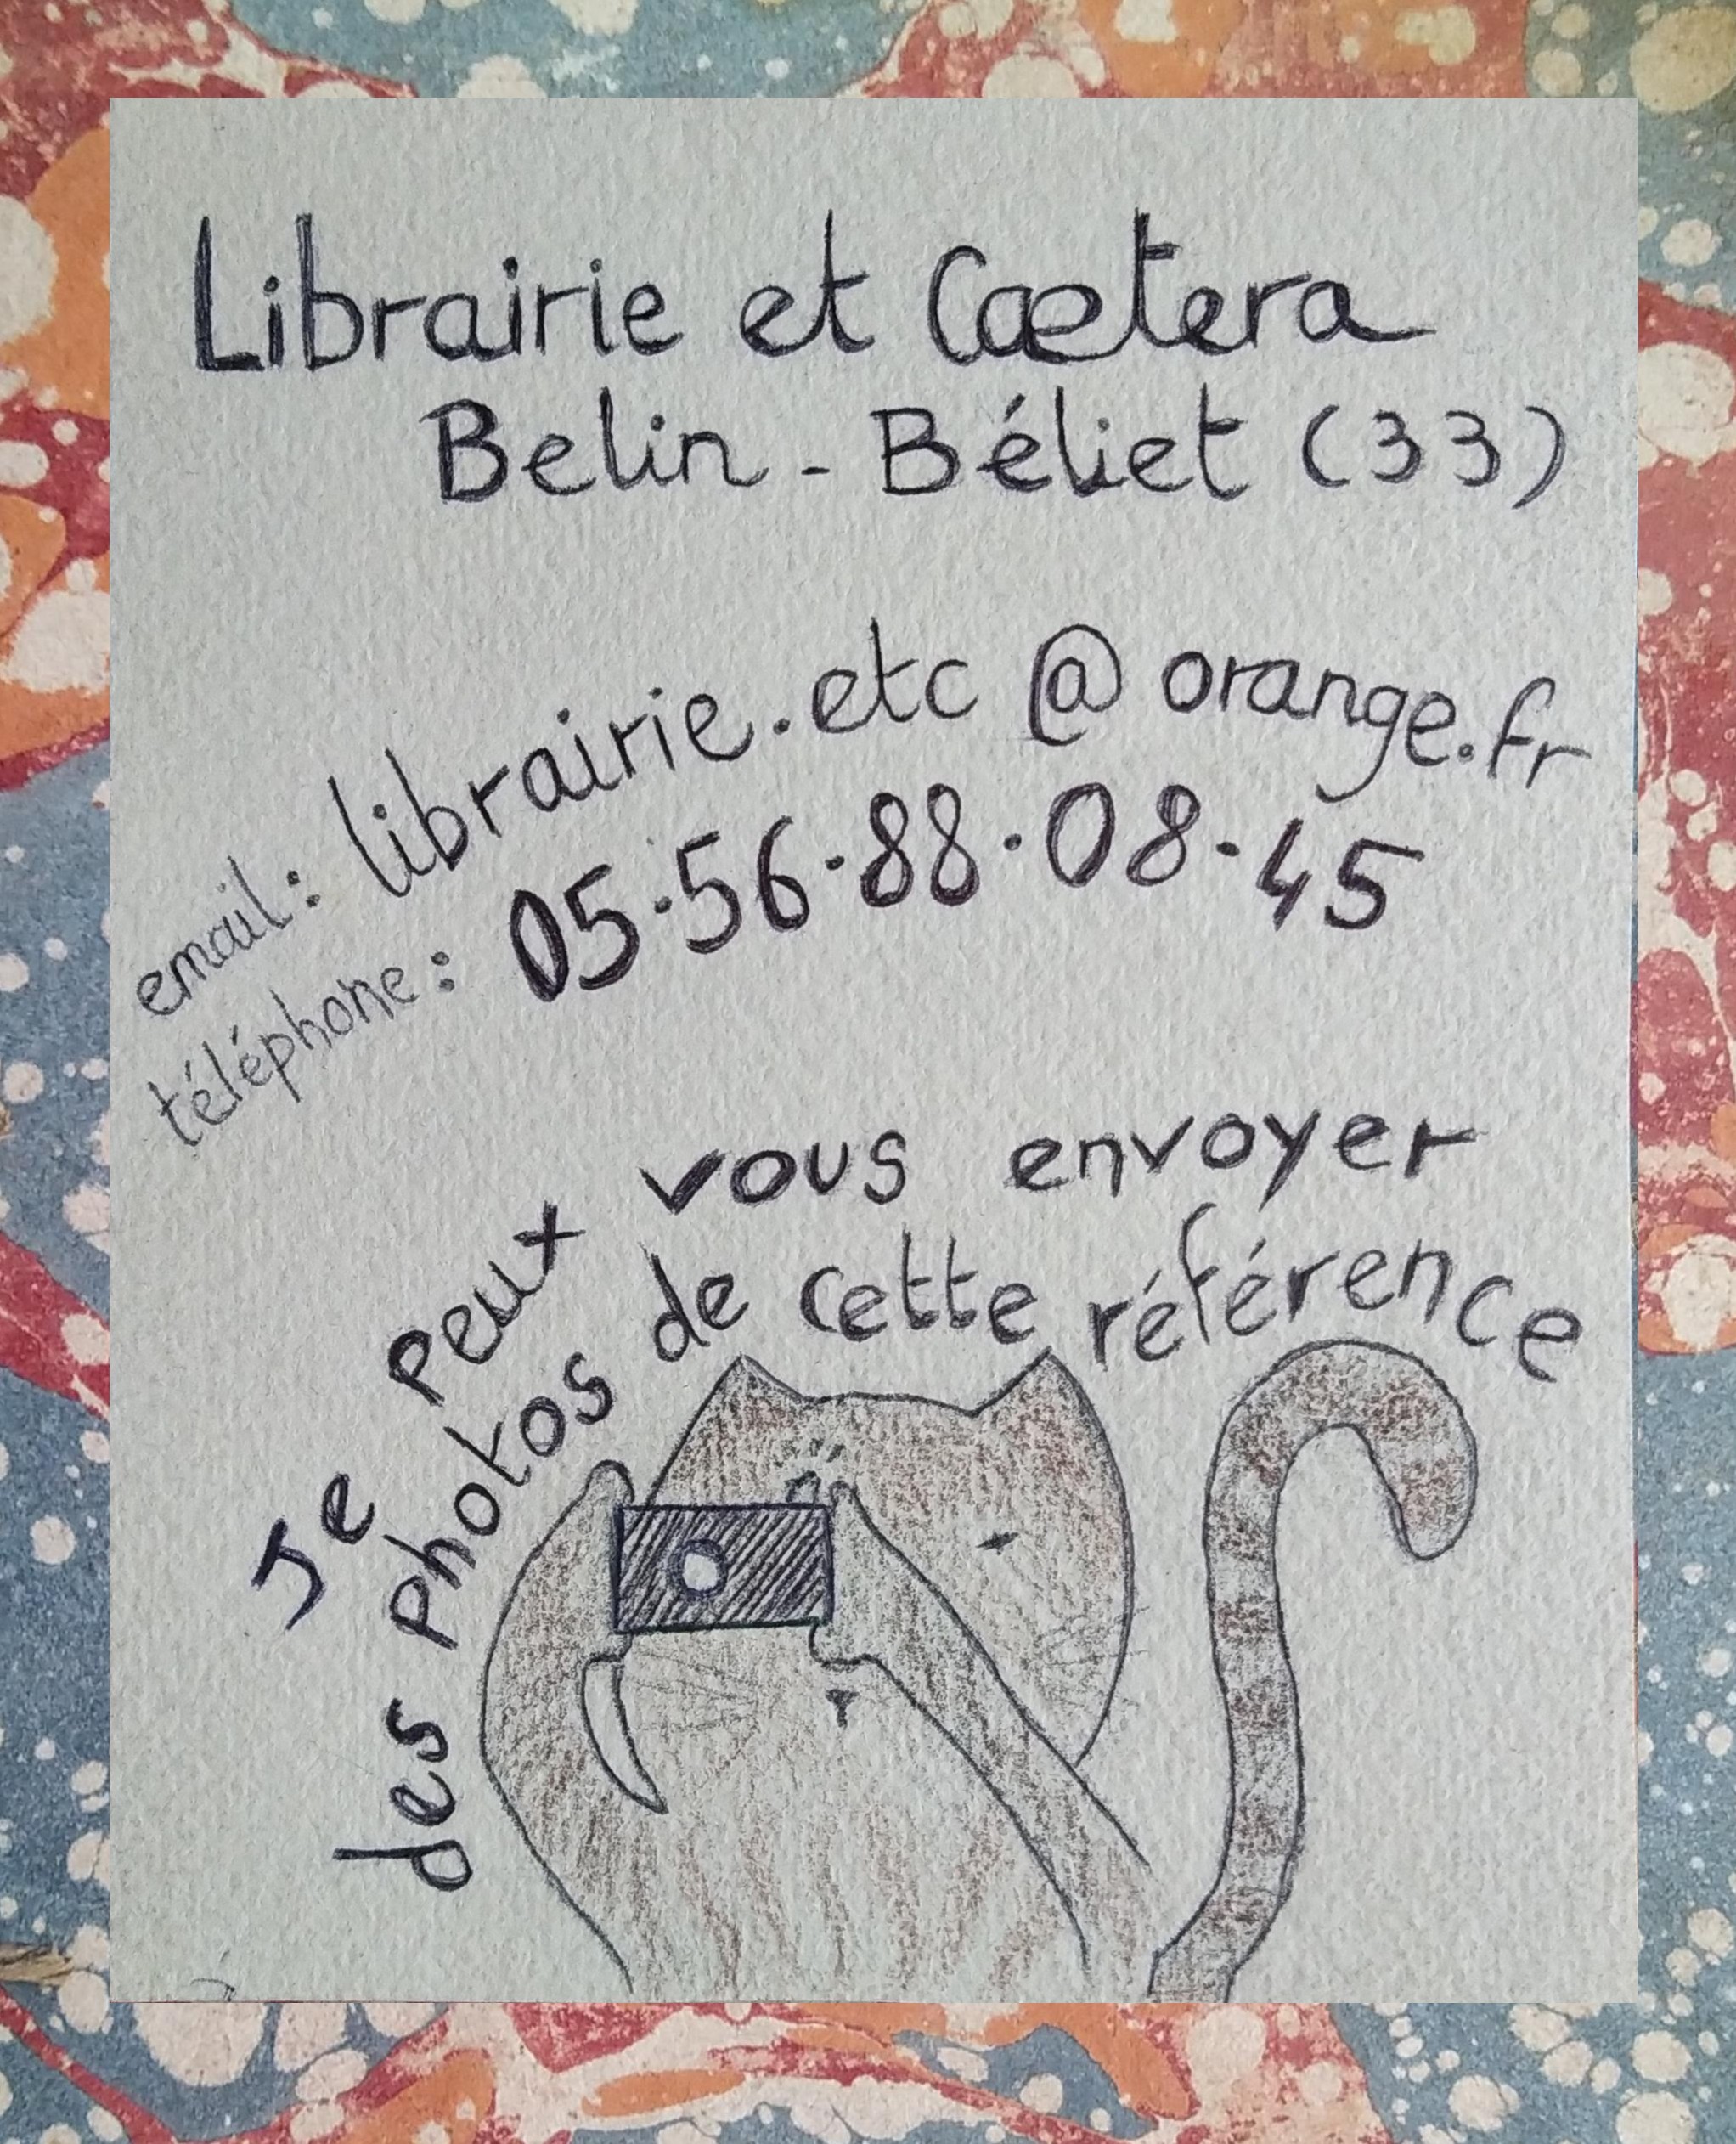 Librairie et Cætera
Belin-Béliet (33)
email : librairie.etc @ orange.fr
téléphone : 05.56.88.08.45
Je peux vous envoyer
des photos de cette référence